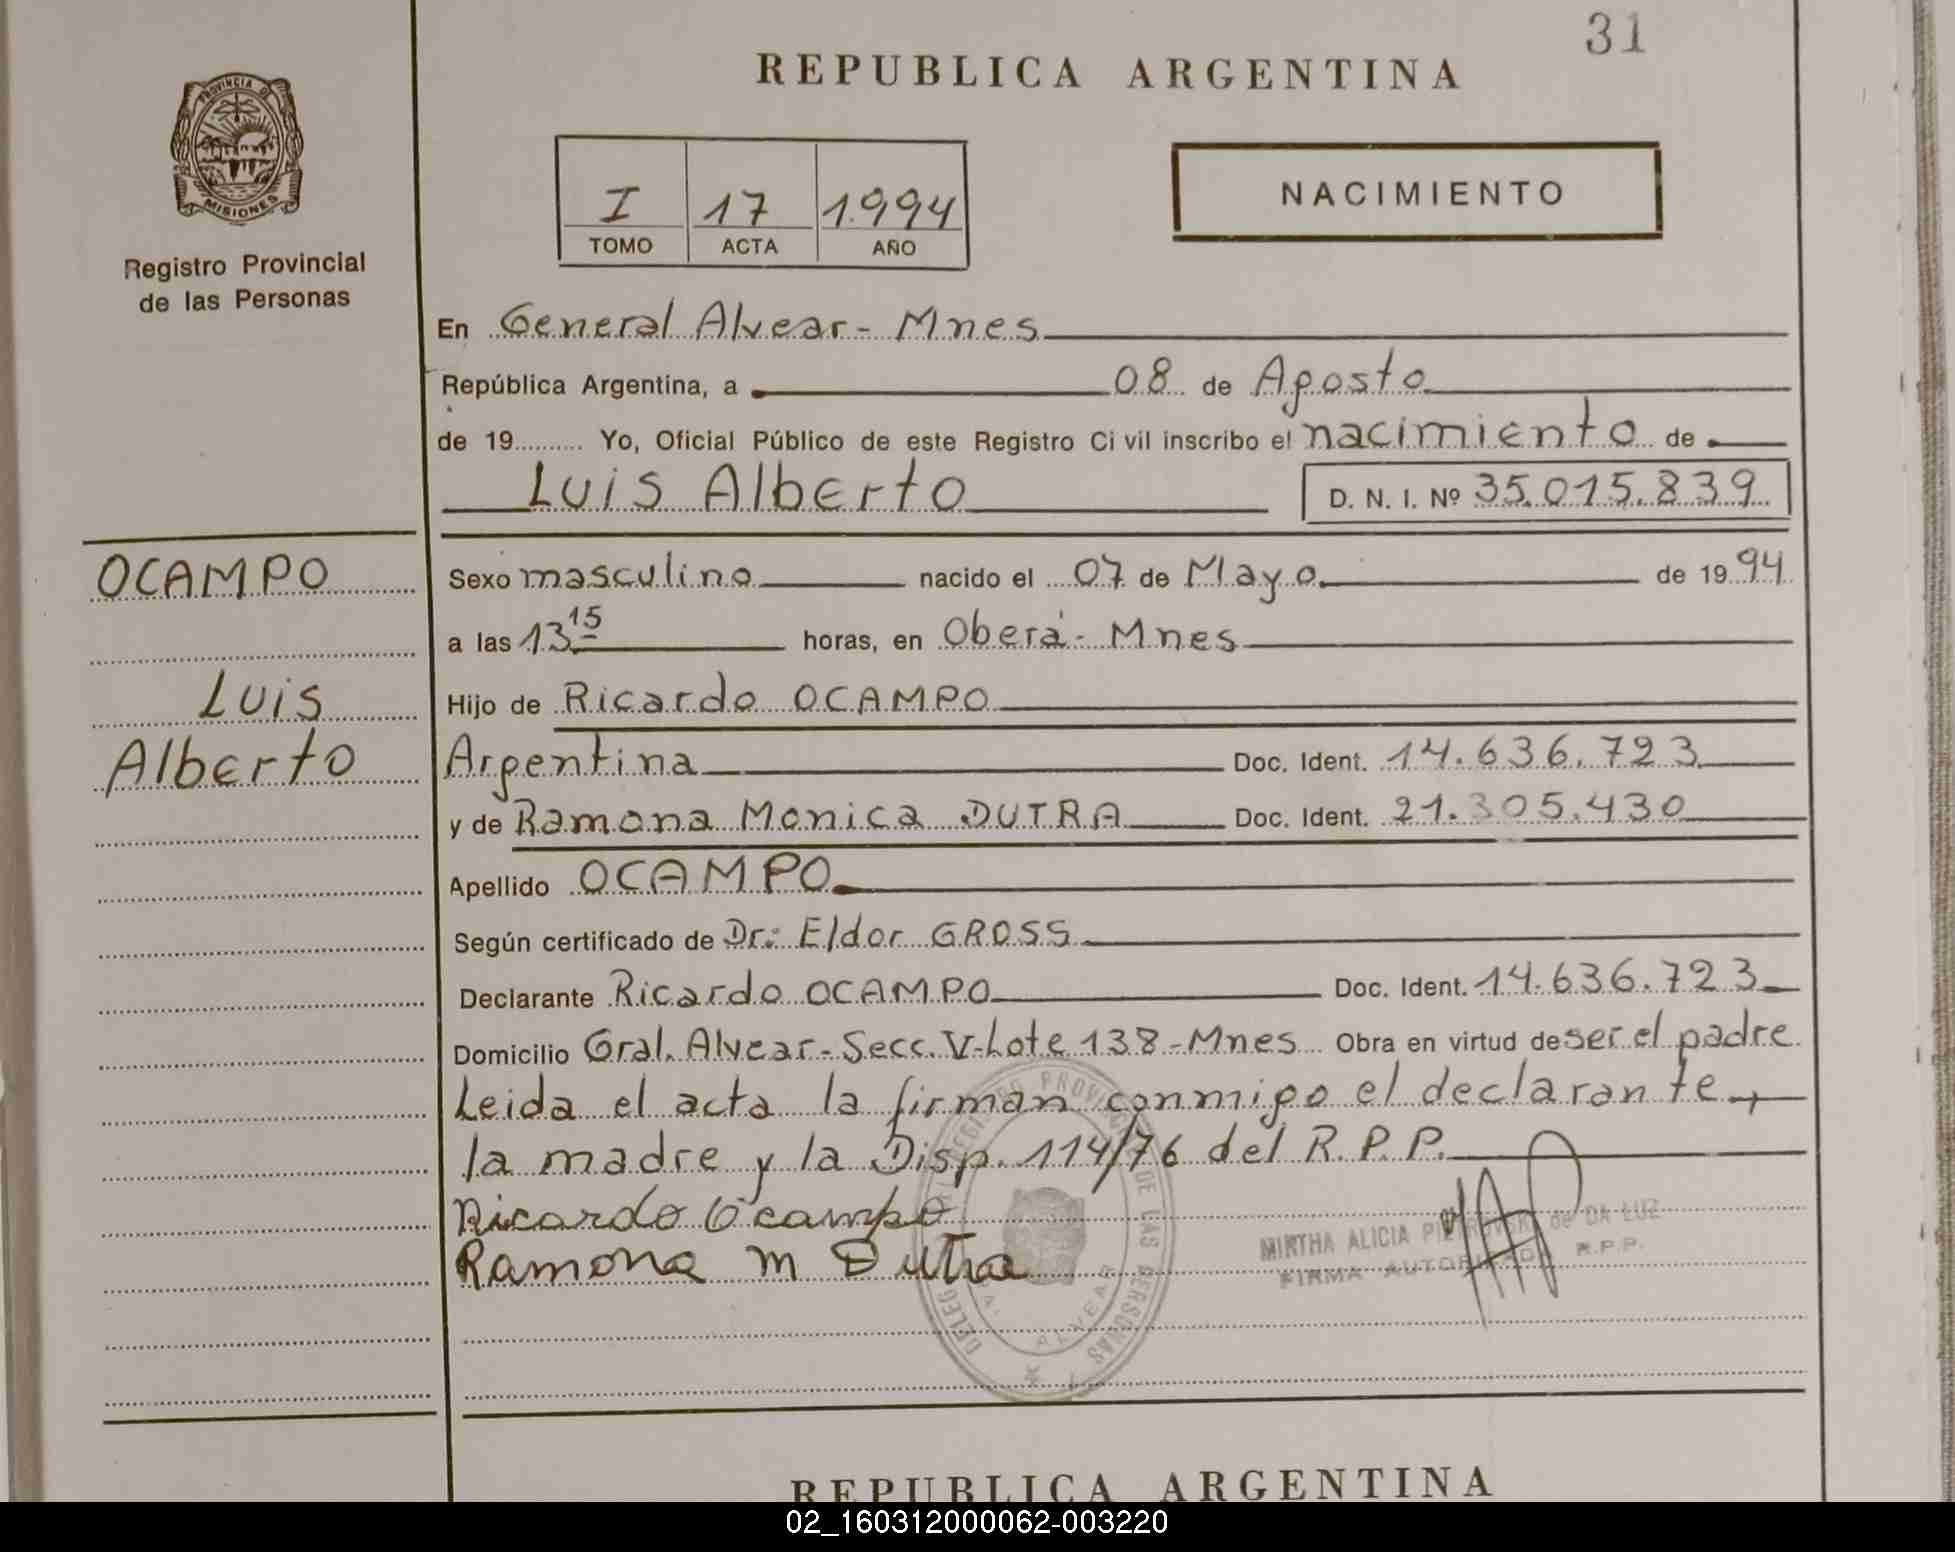 31
REPUBLICA ARGENTINA
PROVINCIA DE
MISIONES
Registro Provincial
de las Personas
I 17 1.994
TOMO ACTA AÑO
NACIMIENTO
En General Alvear - Mnes
República Argentina, a 08 de Agosto
de 19 Yo, Oficial Público de este Registro Ci vil inscribo el nacimiento de
Luis Alberto D. N. I. Nº 35.015.839
OCAMPO
Luis
Alberto
Sexo masculino nacido el 07 de Mayo de 1994
a las 13 15 horas, en Oberá - Mnes
Hijo de Ricardo OCAMPO
Argentina Doc. Ident. 14.636.723
y de Ramona Monica DUTRA Doc. Ident. 21.305.430
Apellido OCAMPO
Según certificado de Dr.: Eldor GROSS
Declarante Ricardo OCAMPO Doc. Ident. 14.636.723
Domicilio Gral. Alvear - Secc. V - Lote 138 - Mnes Obra en virtud de ser el padre
Leida el acta la firman conmigo el declarante,
la madre y la Disp. 114/76 del R.P.P.
Ricardo Ocampo
Ramona M Dutra
MIRTHA ALICIA de DA LUZ
FIRMA AUTORIZADA R.P.P.
REGISTRO PROVINCIAL DE LAS PERSONAS
ALVEAR
REPUBLICA ARGENTINA
02_160312000062-003220